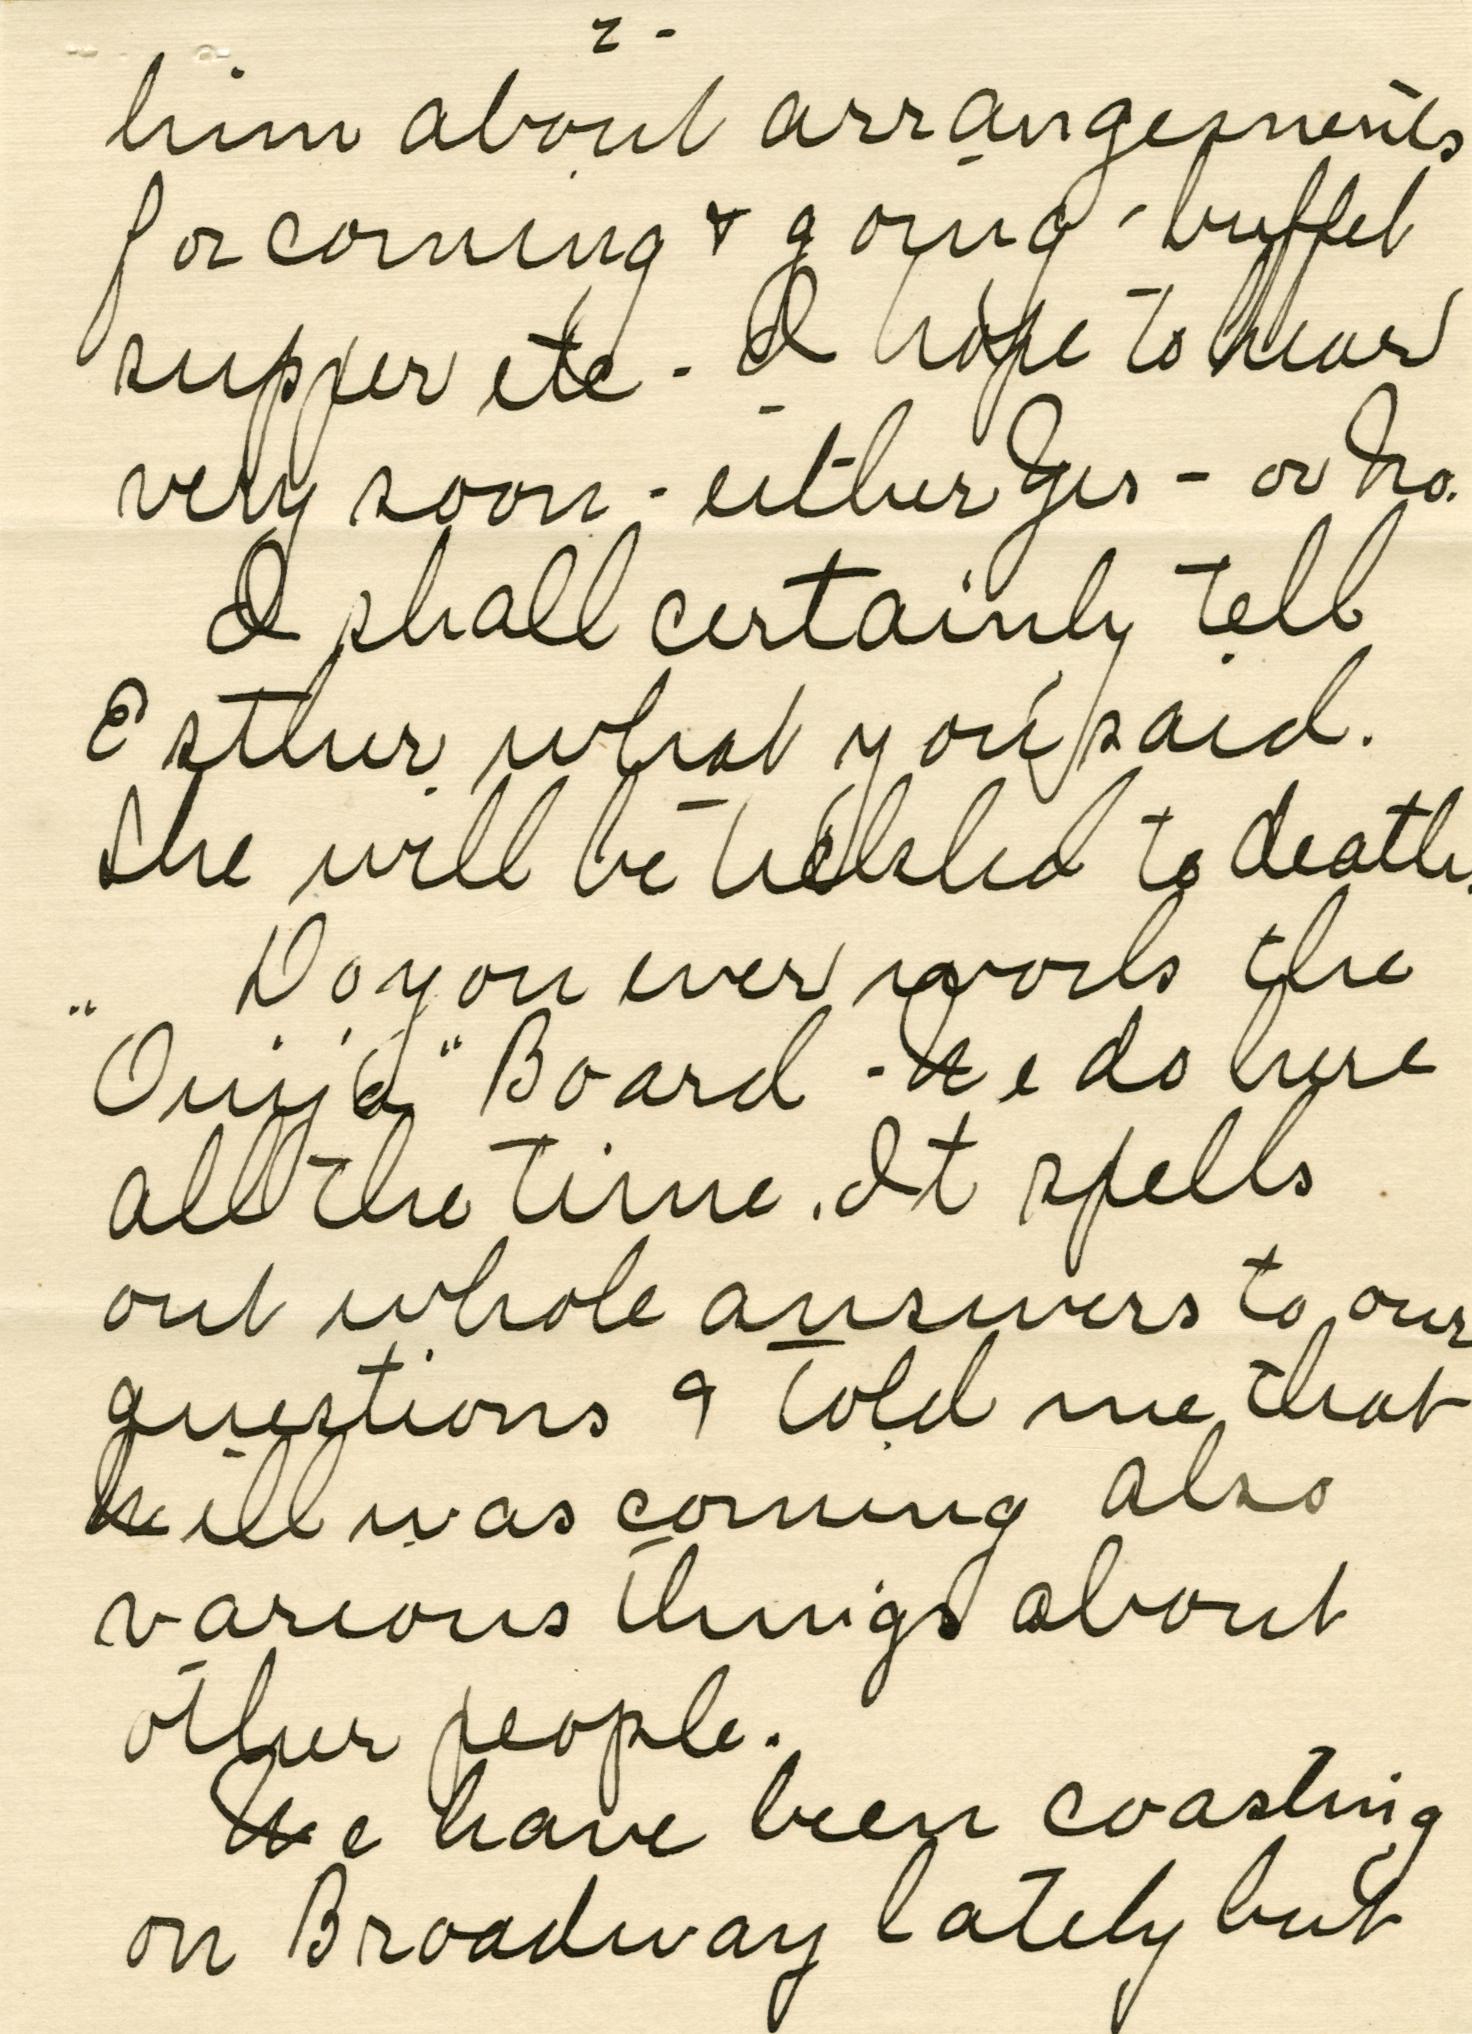 2 -
him about arrangements
for coming & going - buffet
supper etc - I hope to hear
very soon - either Yes - or No.
I shall certainly tell
Esther what you said.
She will be tickled to death.
Do you ever work the
"Ouija" Board - We do here
all the time. It spells
out whole answers to our
questions & told me that
Will was coming also
various things about
other people.
We have been coasting
on Broadway lately but